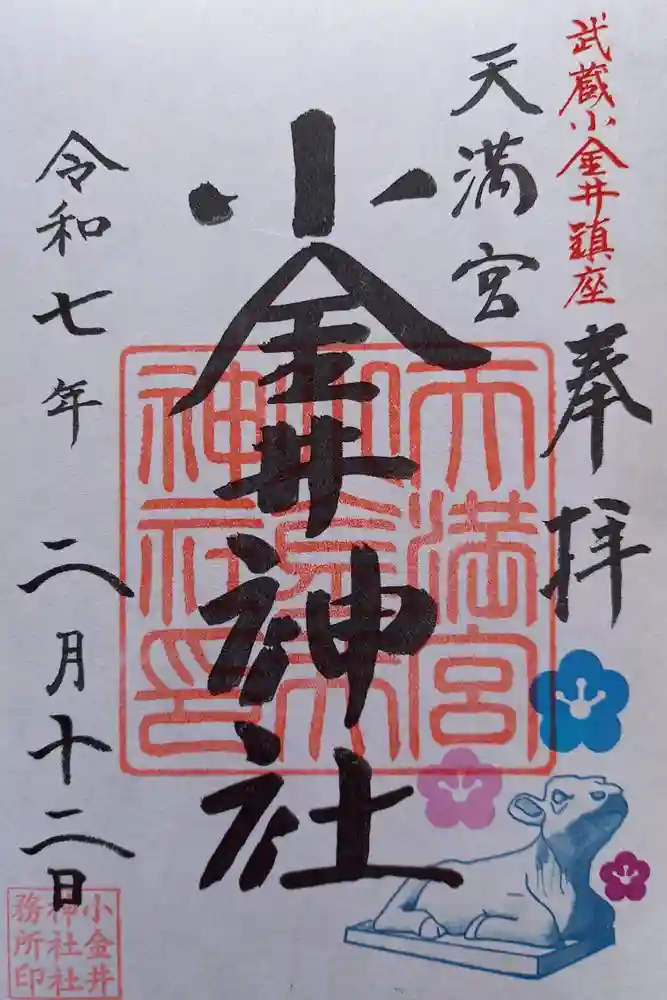 武蔵小金井鎮座
奉拝
天満宮
小金井神社
令和七年二月十二日
天満宮
小金井
神社印
小金井
神社社
務所印